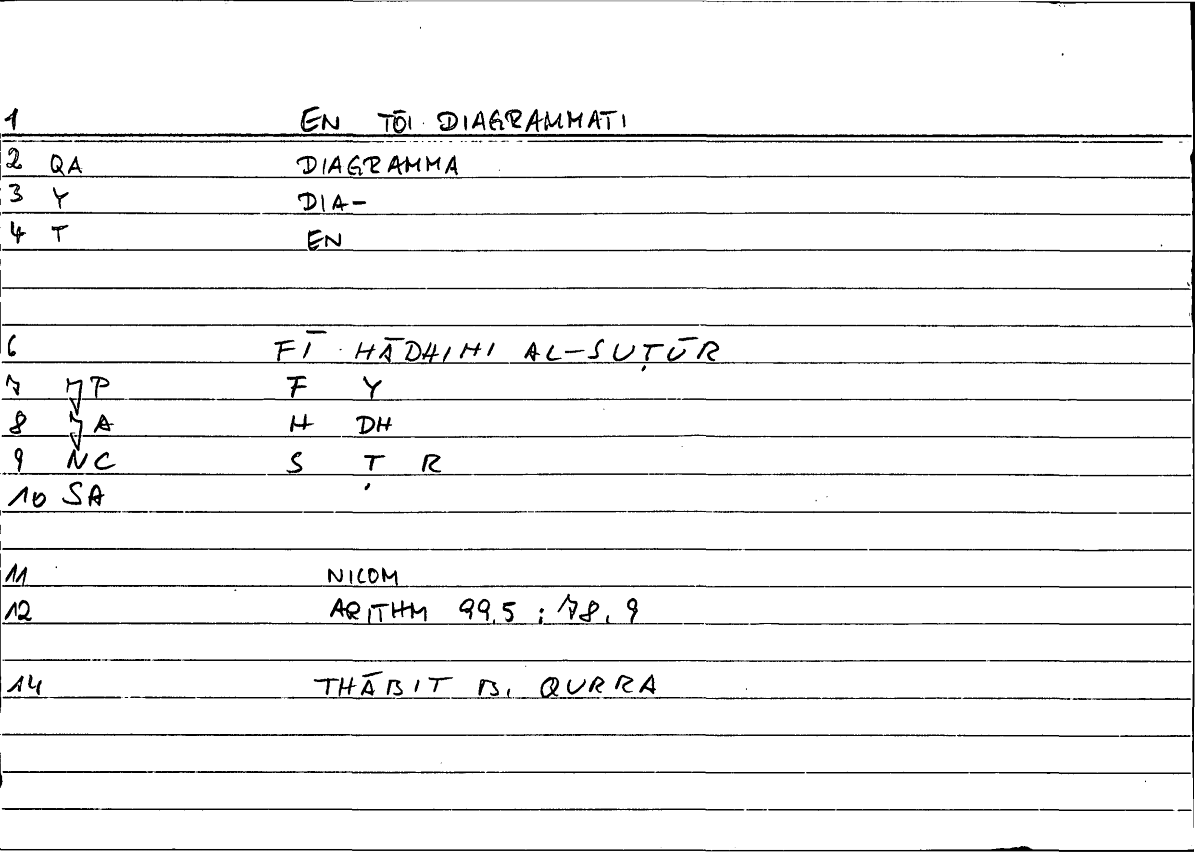 1 EN TŌI DIAGRAMMATI
2 QA DIAGRAMMA
3 Y DIA-
4 T EN
6 FĪ HĀDHIHI AL-SUṬŪR
7 P F Y
8 A H DH
9 NC S Ṭ R
10 SA
11 NICOM
12 ARITHM 99.5 ; 78.9
14 THĀBIT B. QURRA